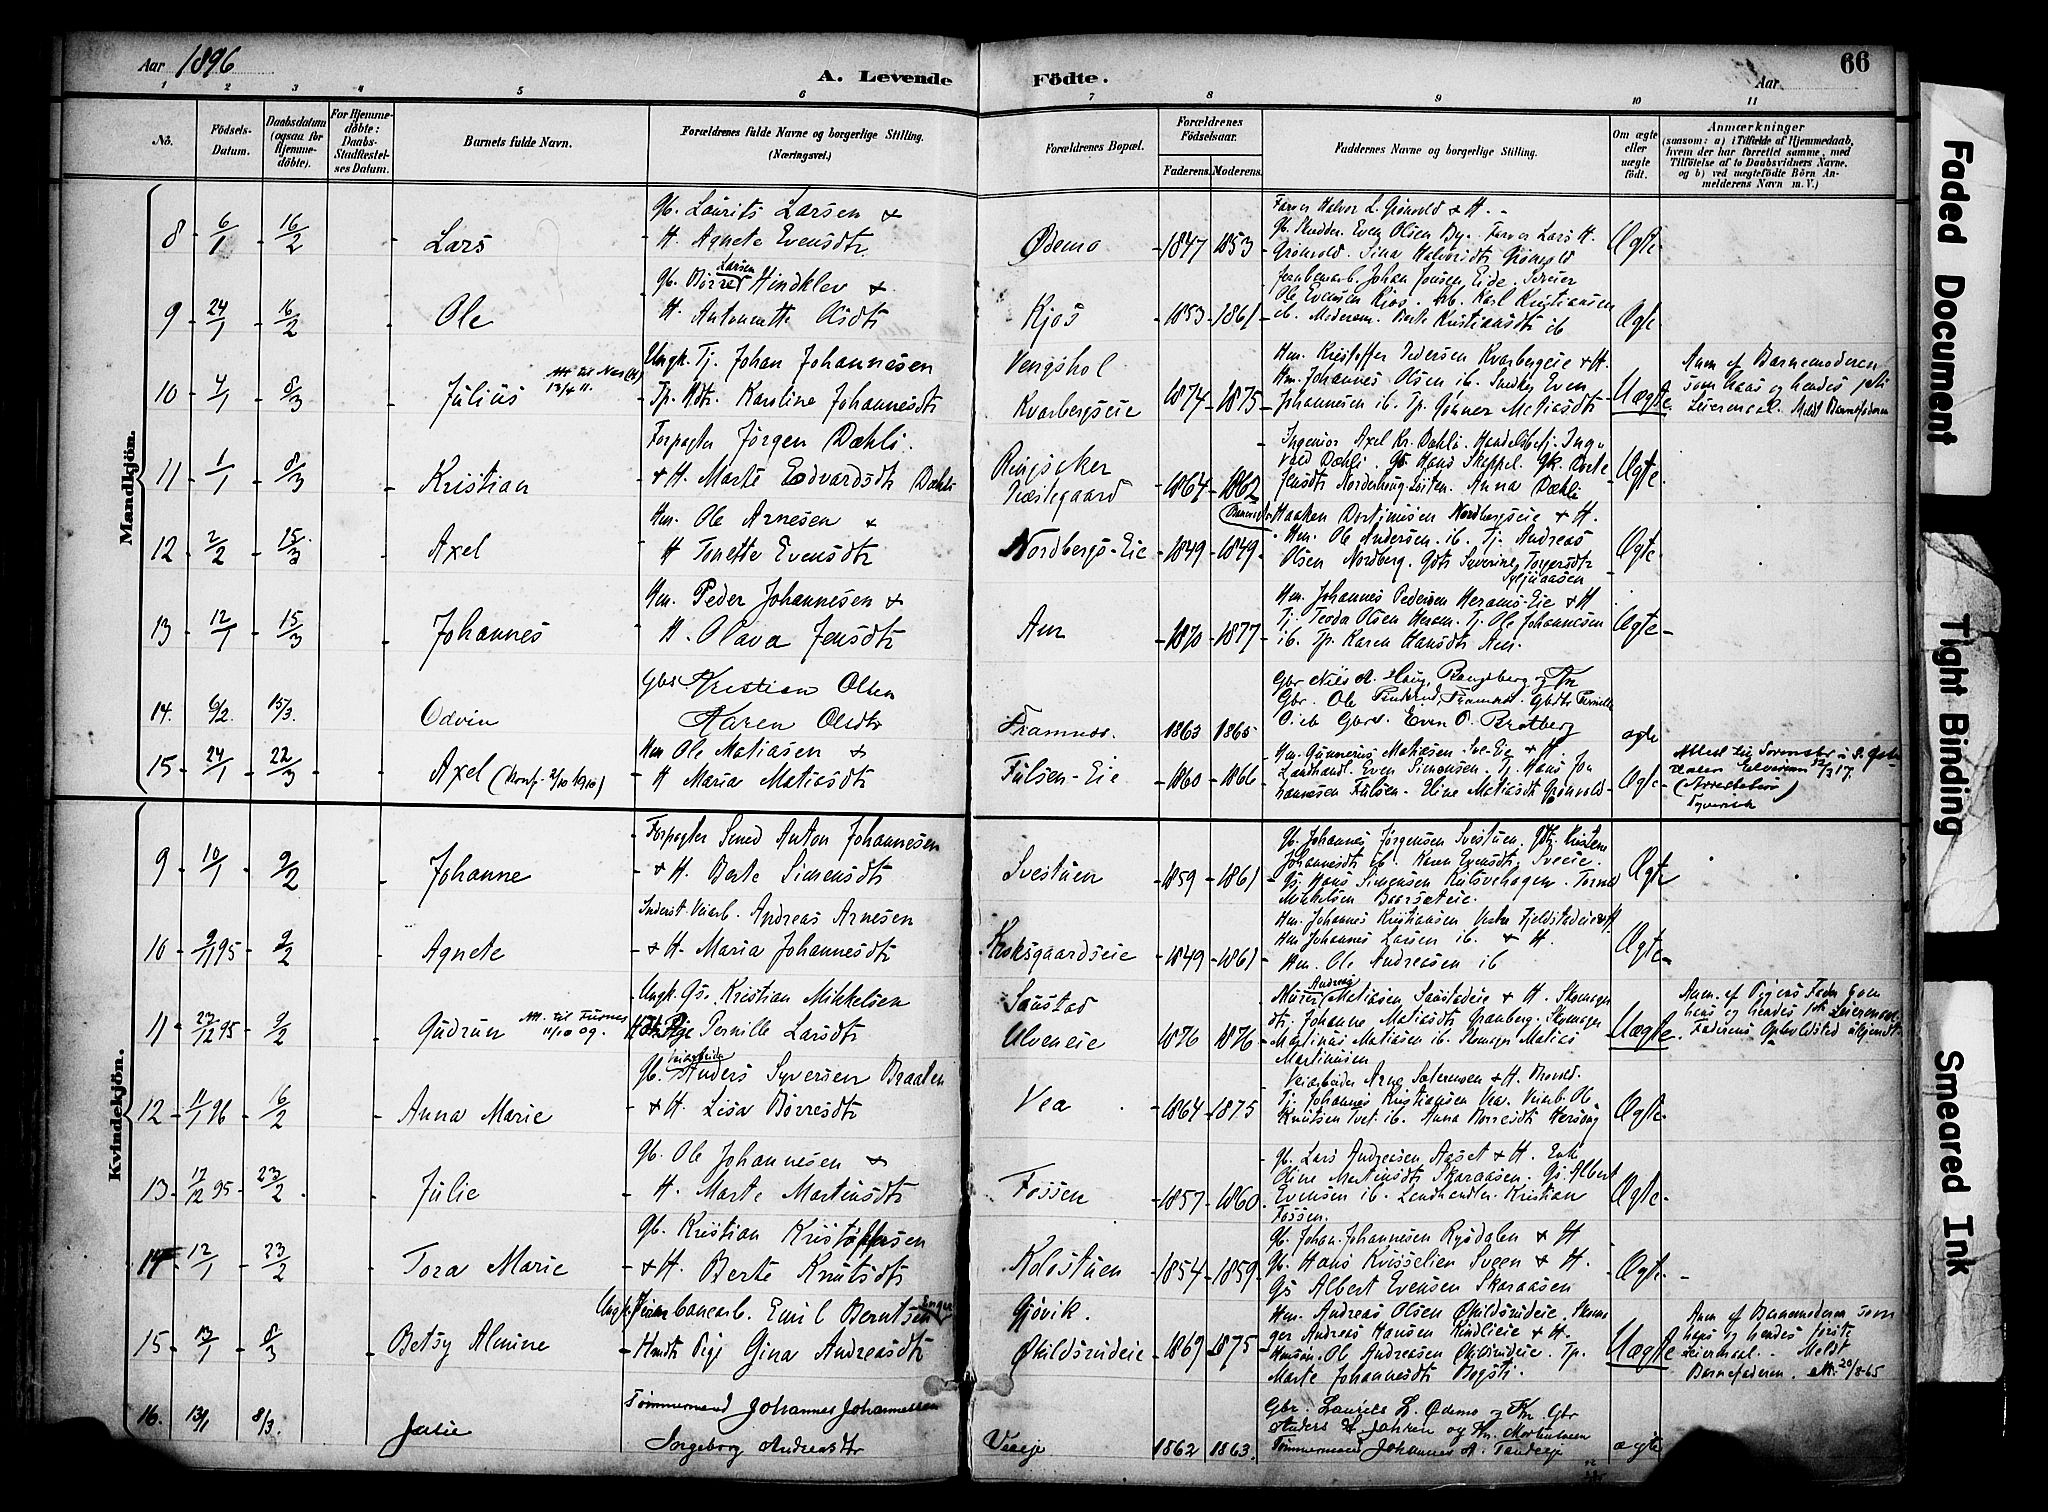 Aar 1896
A. Levende Födte.
Aar
66
1 2 3 4 5 6 7 8 9 10 11
No.
Födsels-Datum.
Daabsdatum (ogsaa for Hjemmedöbte).
For Hjemmedöbte: Daabs-Stadfæstelses Datum.
Barnets fulde Navn.
Forældrenes fulde Navne og borgerlige Stilling. (Næringsvei.)
Forældrenes Bopæl.
Forældrenes Födselsaar.
Faderens. Moderens.
Faddernes Navne og borgerlige Stilling.
Om ægte eller uægte födt.
Anmærkninger
(saasom: a) i Tilfælde af Hjemmedaab, hvem der har forrettet samme, med Tilföielse af to Daabsvidners Navne, og b) ved uægtefödte Börn Anmelderens Navn m. V.)
Mandkjön.
8 6/1 16/2 Lars
Gb. Laurits Larsen &
H. Agnete Evensdtr
Ødemo 1847 1853
Farver Halvor L. Grönvold & H.
Gb. Skudder Even Olsen By. Farver Lars H.
Grönvold. Sina Halvorsdt Grönvold
Ægte
9 24/1 16/2 Ole
Gb. Börre Larsen Hindklev &
H. Antonette Olsdtr
Kjos 1853 1861
Jernbanearb. Johan Jensen Eide.
Ole Evensen Kjos. Arb. Karl Kristiansen
ib. Berte Kristiansdtr ib
Ægte
10 4/1 8/3 Julius
Att til Nes (H) 13/4 11.
Ungk. Tj. Johan Johannesen
Tp. Karoline Johannesdtr
Vengshol
Kvarbergseie 1874 1875
Hm. Kristoffer Pedersen Kvarbergeie & H.
Hm. Johannes Olsen ib. Snedker Even
Johannesen ib. Tp. Gunner Matiasdtr
Uægte
Anm. af Barnemoderen
som hans og hendes 1ste
Leiermaal. Meldt Barnefaderen
11 1/1 8/3 Kristian
Forpagter Jörgen Dæhli
& H. Marte Edvardsdtr Dæhli
Ringsaker
Præstegaard 1864 1862
Ingeniör Axel Kr. Dæhli. Handelsbetj. Ingvald
Dæhli. Gs. Hans Skappel. Gk. Dorte
Jensdtr Norderhaug Löiten. Anna Dæhli
Ægte
12 2/2 15/3 Axel
Hm. Ole Arnesen &
H. Tonette Evensdtr
Nordbergs-Eie 1849 1849
Haaken Nordbergseie & H.
Hm. Ole Andersen ib. Tj. Andreas
Olsen Nordberg. Gdtr Syverine Torgersdtr
Syljuaasen
Ægte
13 12/1 15/3 Johannes
Hm. Peder Johannesen &
H. Olava Jensdtr
Aur 1870 1877
Hm. Johannes Pedersen Herams-Eie & H
Tj. Teodor Olsen Heram. Tj. Ole Johannesen
ib. Tp. Karen Hansdtr Aur.
Ægte
14. 6/2. 15/3. Odvin
Gbr Kristian Olsen
Karen Olsdtr
Framnæs. 1863 1865
Gbr Nils A. Haug, Rangsberg og Kr
Gbr. Ole Framnæs. Gbdtr Pernille
O. ib Gbrs. Even O. Bratberg
ægte
15 24/1 22/3 Axel (Konf. 2/10 1910)
Hm. Ole Matiasen &
H Maria Matiasdtr
Fulsen-Eie 1860 1866
Hm. Gunnerius Matiasen Sve-Eie & H
Landhandl. Even Simensen. Tj. Hans Johannesen
Fulsen. Eline Matiasdt Grönvold
Ægte
Kvindekjön.
9 10/1 9/2 Johanne
Forpagter Smed Anton Johannesen
& H. Berte Simensdtr
Svestuen 1859 1861
Gb. Johannes Jörgensen Svestuen. Gdtr. Kristine
Johannesdt ib. Karen Evensdt, Sveeie.
Gs. Hans Simensen Kulsvehagen.
Mikkelsen Baarseteie.
Ægte
10 9/11 95 9/2 Agnete
Inderst. Veiarb. Andreas Arnesen
& H. Maria Johannesdtr
Kroksgaardseie 1849 1861
Hm. Johannes Kristiansen Vestre Fjeldstadeie & H.
Hm Johannes Larsen ib. & H.
Hm. Ole Andreasen ib
Ægte
11 23/12 95 9/2 Gudrun
Att. til Furnes 11/10 09.
Ungk. Gs. Kristian Mikkelsen
Pige Pernille Larsdtr
Saustad
Ulveneie 1876 1876
Murer Andreas Matiasen Saustadeie & H. Skomagerdtr.
Johanne Matiasdt Granberg. Skomager
Martinus Matiasen ib. Skomager Matias
Martinusen
Uægte
Anm. af Pigens Fader som
hans og hendes 1ste Leiermaal.
Faderens Opholdsted ukjendt
12 11/1 96 16/2 Anna Marie
Gb. Veiarbeider Anders Syversen Braaten
& H. Lisa Börresdtr
Vea 1864 1875
Veiarbeider Arne & H.
Tj. Johannes Kristiansen Vea. Veiarb. Ole
Knutsen Tvet. ib. Anna Börresdtr
Ægte
13 17/12 95 23/2 Julie
Gb. Ole Johannesen &
H. Marte Martinsdtr
Fossen 1857 1860
Gb. Lars Andreasen Aaset & H. Enke
Oline Martinusdt Skaraasen. Gs. Albert
Evensen ib. Landhandler Kristian
Fossen.
Ægte
14 12/1 23/2 Tora Marie
Gb. Kristian Kristoffersen
& H. Berte Knutsdtr
Kolostuen 1854 1859
Gb. Johan Johannesen Rysdalen & H
Gb. Hans Kvisselien Sveen & H.
Gs Albert Evensen Skaraasen
Ægte
15 13/1 8/3 Betsy Almine
Ungk. Jernbanearb. Emil Berntsen
Hmdtr Pige Gina Andreasdtr
Gjövik.
Økildsrudeie 1869 1875
Hm. Andreas Olsen Økildsrudeie, Skomager
Andreas Hansen Kindlieie & H.
Hmsön. Ole Andreasen Økildsrudeie. Tp.
Marte Johannesdt Bogsti.
Uægte
Anm. af Barnemoderen som
hans og hendes förste
Leiermaal. Meldt
Barnefaderen.
16. 13/1 8/3. Julie
Tömmermand Johannes Johannessen
Ingeborg Andreasdtr
Veseje 1862 1863.
Gbr. Laurits L. Ødemo og Kr. Gbr
Anders og Kr.
Tömmermand Johannes A.
ægte
Faded Document
Tight Binding
Smeared Ink